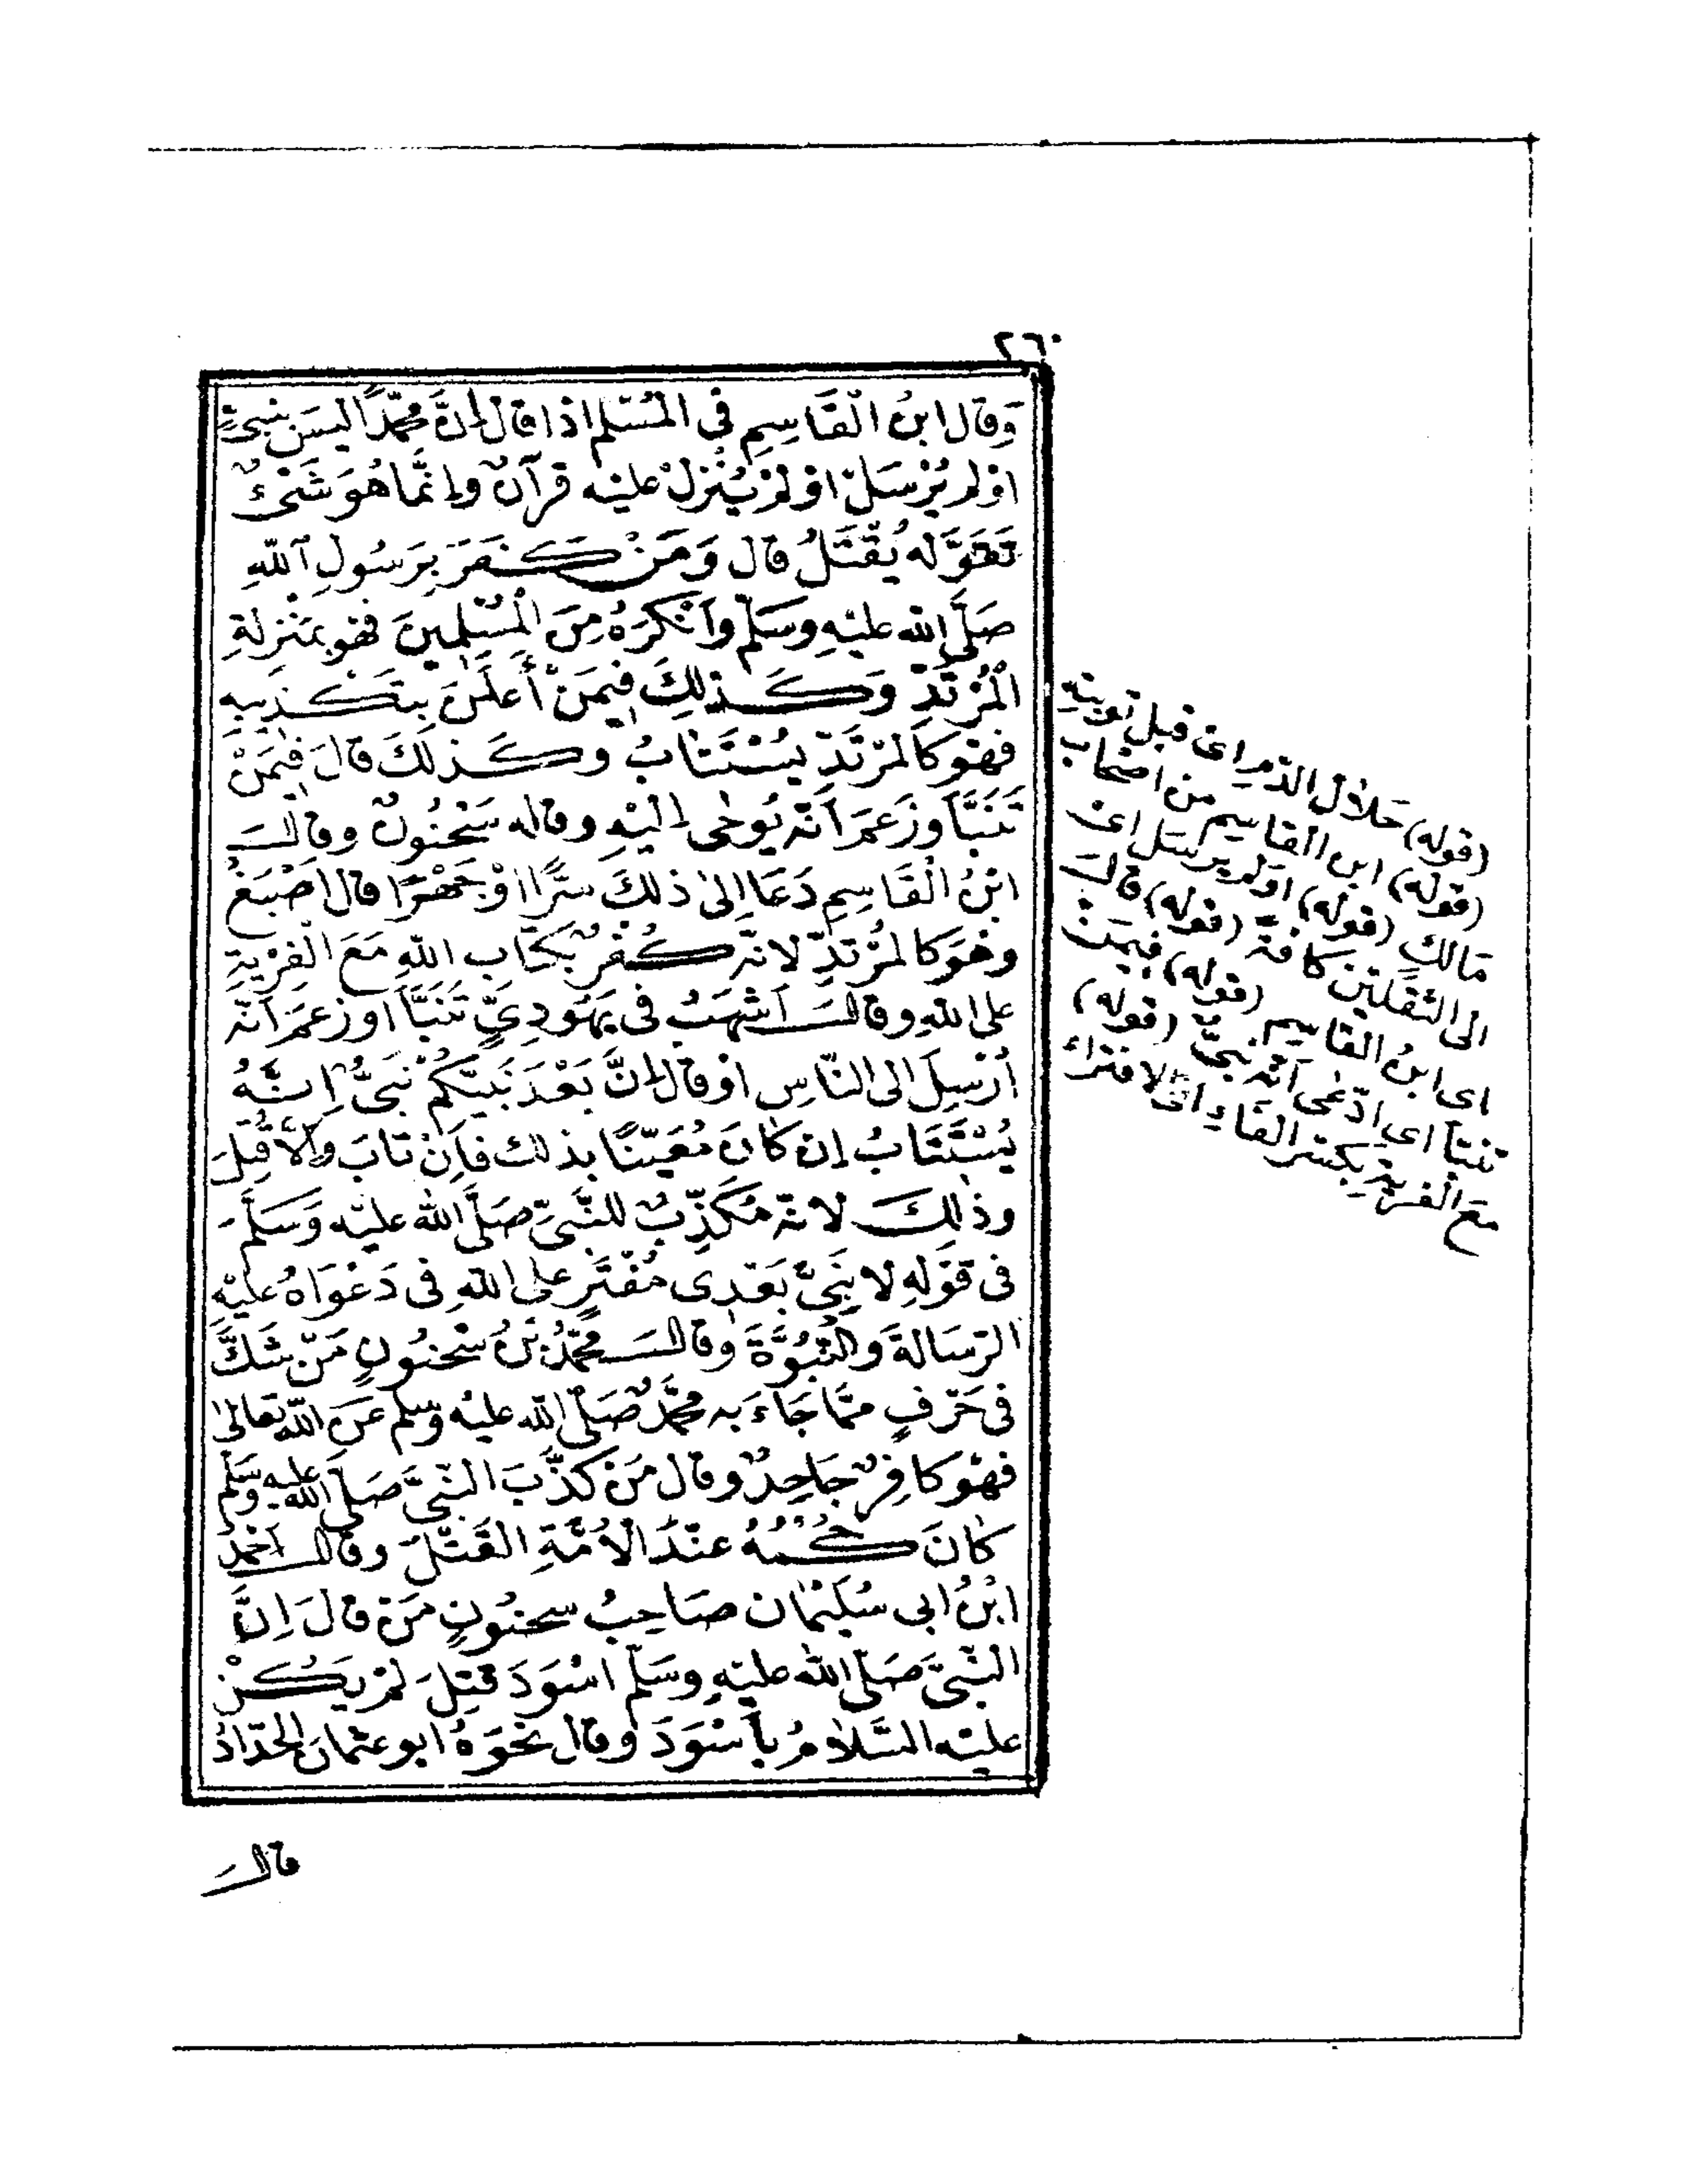 ٢٦٠
وَقَالَ ابْنُ الْقَاسِمِ فِي الْمُسْلِمِ اِذَا قَالَ اِنَّ مُحَمَّدًا لَيْسَ بِنَبِيٍّ
اَوْ لَمْ يُرْسَلْ اَوْ لَمْ يُنْزَلْ عَلَيْهِ قُرْآنٌ وَاِنَّمَا هُوَ شَىْءٌ
تَقَوَّلَهُ يُقْتَلُ قَالَ وَمَنْ كَفَرَ بِرَسُولِ اللهِ
صَلَّى اللهُ عَلَيْهِ وَسَلَّمَ وَاَنْكَرَهُ مِنَ الْمُسْلِمِينَ فَهُوَ بِمَنْزِلَةِ
الْمُرْتَدِّ وَكَذٰلِكَ فِيمَنْ أَعْلَنَ بِتَكْذِيبِهِ
فَهُوَ كَالْمُرْتَدِّ يُسْتَتَابُ وَكَذٰلِكَ قَالَ فِيمَنْ
تَنَبَّأَ وَزَعَمَ اَنَّهُ يُوحٰى اِلَيْهِ وَقَالَهُ سَحْنُونٌ وَقَالَ
ابْنُ الْقَاسِمِ دَعَا اِلىٰ ذٰلِكَ سِرًّا اَوْ جَهْرًا قَالَ اَصْبَغُ
وَهُوَ كَالْمُرْتَدِّ لِاَنَّهُ كُفْرٌ بِكِتَابِ اللهِ مَعَ الْفِرْيَةِ
عَلَى اللهِ وَقَالَ اَشْهَبُ فِى يَهُودِيٍّ تَنَبَّأَ اَوْ زَعَمَ اَنَّهُ
اُرْسِلَ اِلَى النَّاسِ اَوْ قَالَ اِنَّ بَعْدَ نَبِيِّكُمْ نَبِىٌّ اِنَّهُ
يُسْتَتَابُ اِنْ كَانَ مُعَيِّنًا بِذٰلِكَ فَاِنْ تَابَ وَاِلَّا قُتِلَ
وَذٰلِكَ لِاَنَّهُ مُكَذِّبٌ لِلنَّبِىِّ صَلَّى اللهُ عَلَيْهِ وَسَلَّمَ
فِى قَوْلِهِ لَا نَبِىَّ بَعْدِى مُفْتَرٍ عَلَى اللهِ فِى دَعْوَاهُ عَلَيْهِ
الرِّسَالَةَ وَالنُّبُوَّةَ وَقَالَ مُحَمَّدُ بْنُ سَحْنُونٍ مَنْ شَكَّ
فِى حَرْفٍ مِمَّا جَاءَ بِهِ مُحَمَّدٌ صَلَّى اللهُ عَلَيْهِ وَسَلَّمَ عَنِ اللهِ تَعَالىٰ
فَهُوَ كَافِرٌ جَاحِدٌ وَقَالَ مَنْ كَذَّبَ النَّبِىَّ صَلَّى اللهُ عَلَيْهِ وَسَلَّمَ
كَانَ حُكْمُهُ عِنْدَ الْاُمَّةِ الْقَتْلَ وَقَالَ اَحْمَدُ
ابْنُ اَبِى سُلَيْمٰانَ صَاحِبُ سَحْنُونٍ مَنْ قَالَ اِنَّ
النَّبِىَّ صَلَّى اللهُ عَلَيْهِ وَسَلَّمَ اَسْوَدَ قُتِلَ لَمْ يَكُنْ
عَلَيْهِ السَّلَامُ بِاَسْوَدَ وَقَالَ نَحْوَهُ اَبُو عُثْمَانَ الْحَدَّادُ
قال
(قوله) حَلَالُ الدَّمِ اى قبل توبته
(قوله) ابن القاسم من اصحاب
مَالكٍ (قوله) اولم يرسل اى
الى الثقلين كافة (قوله) قال
اى ابن القاسم (قوله) فيمن
تنبأ اى ادّعى انّه نبىّ (قوله)
مع الفرية بكسر الفاء اى الافتراء